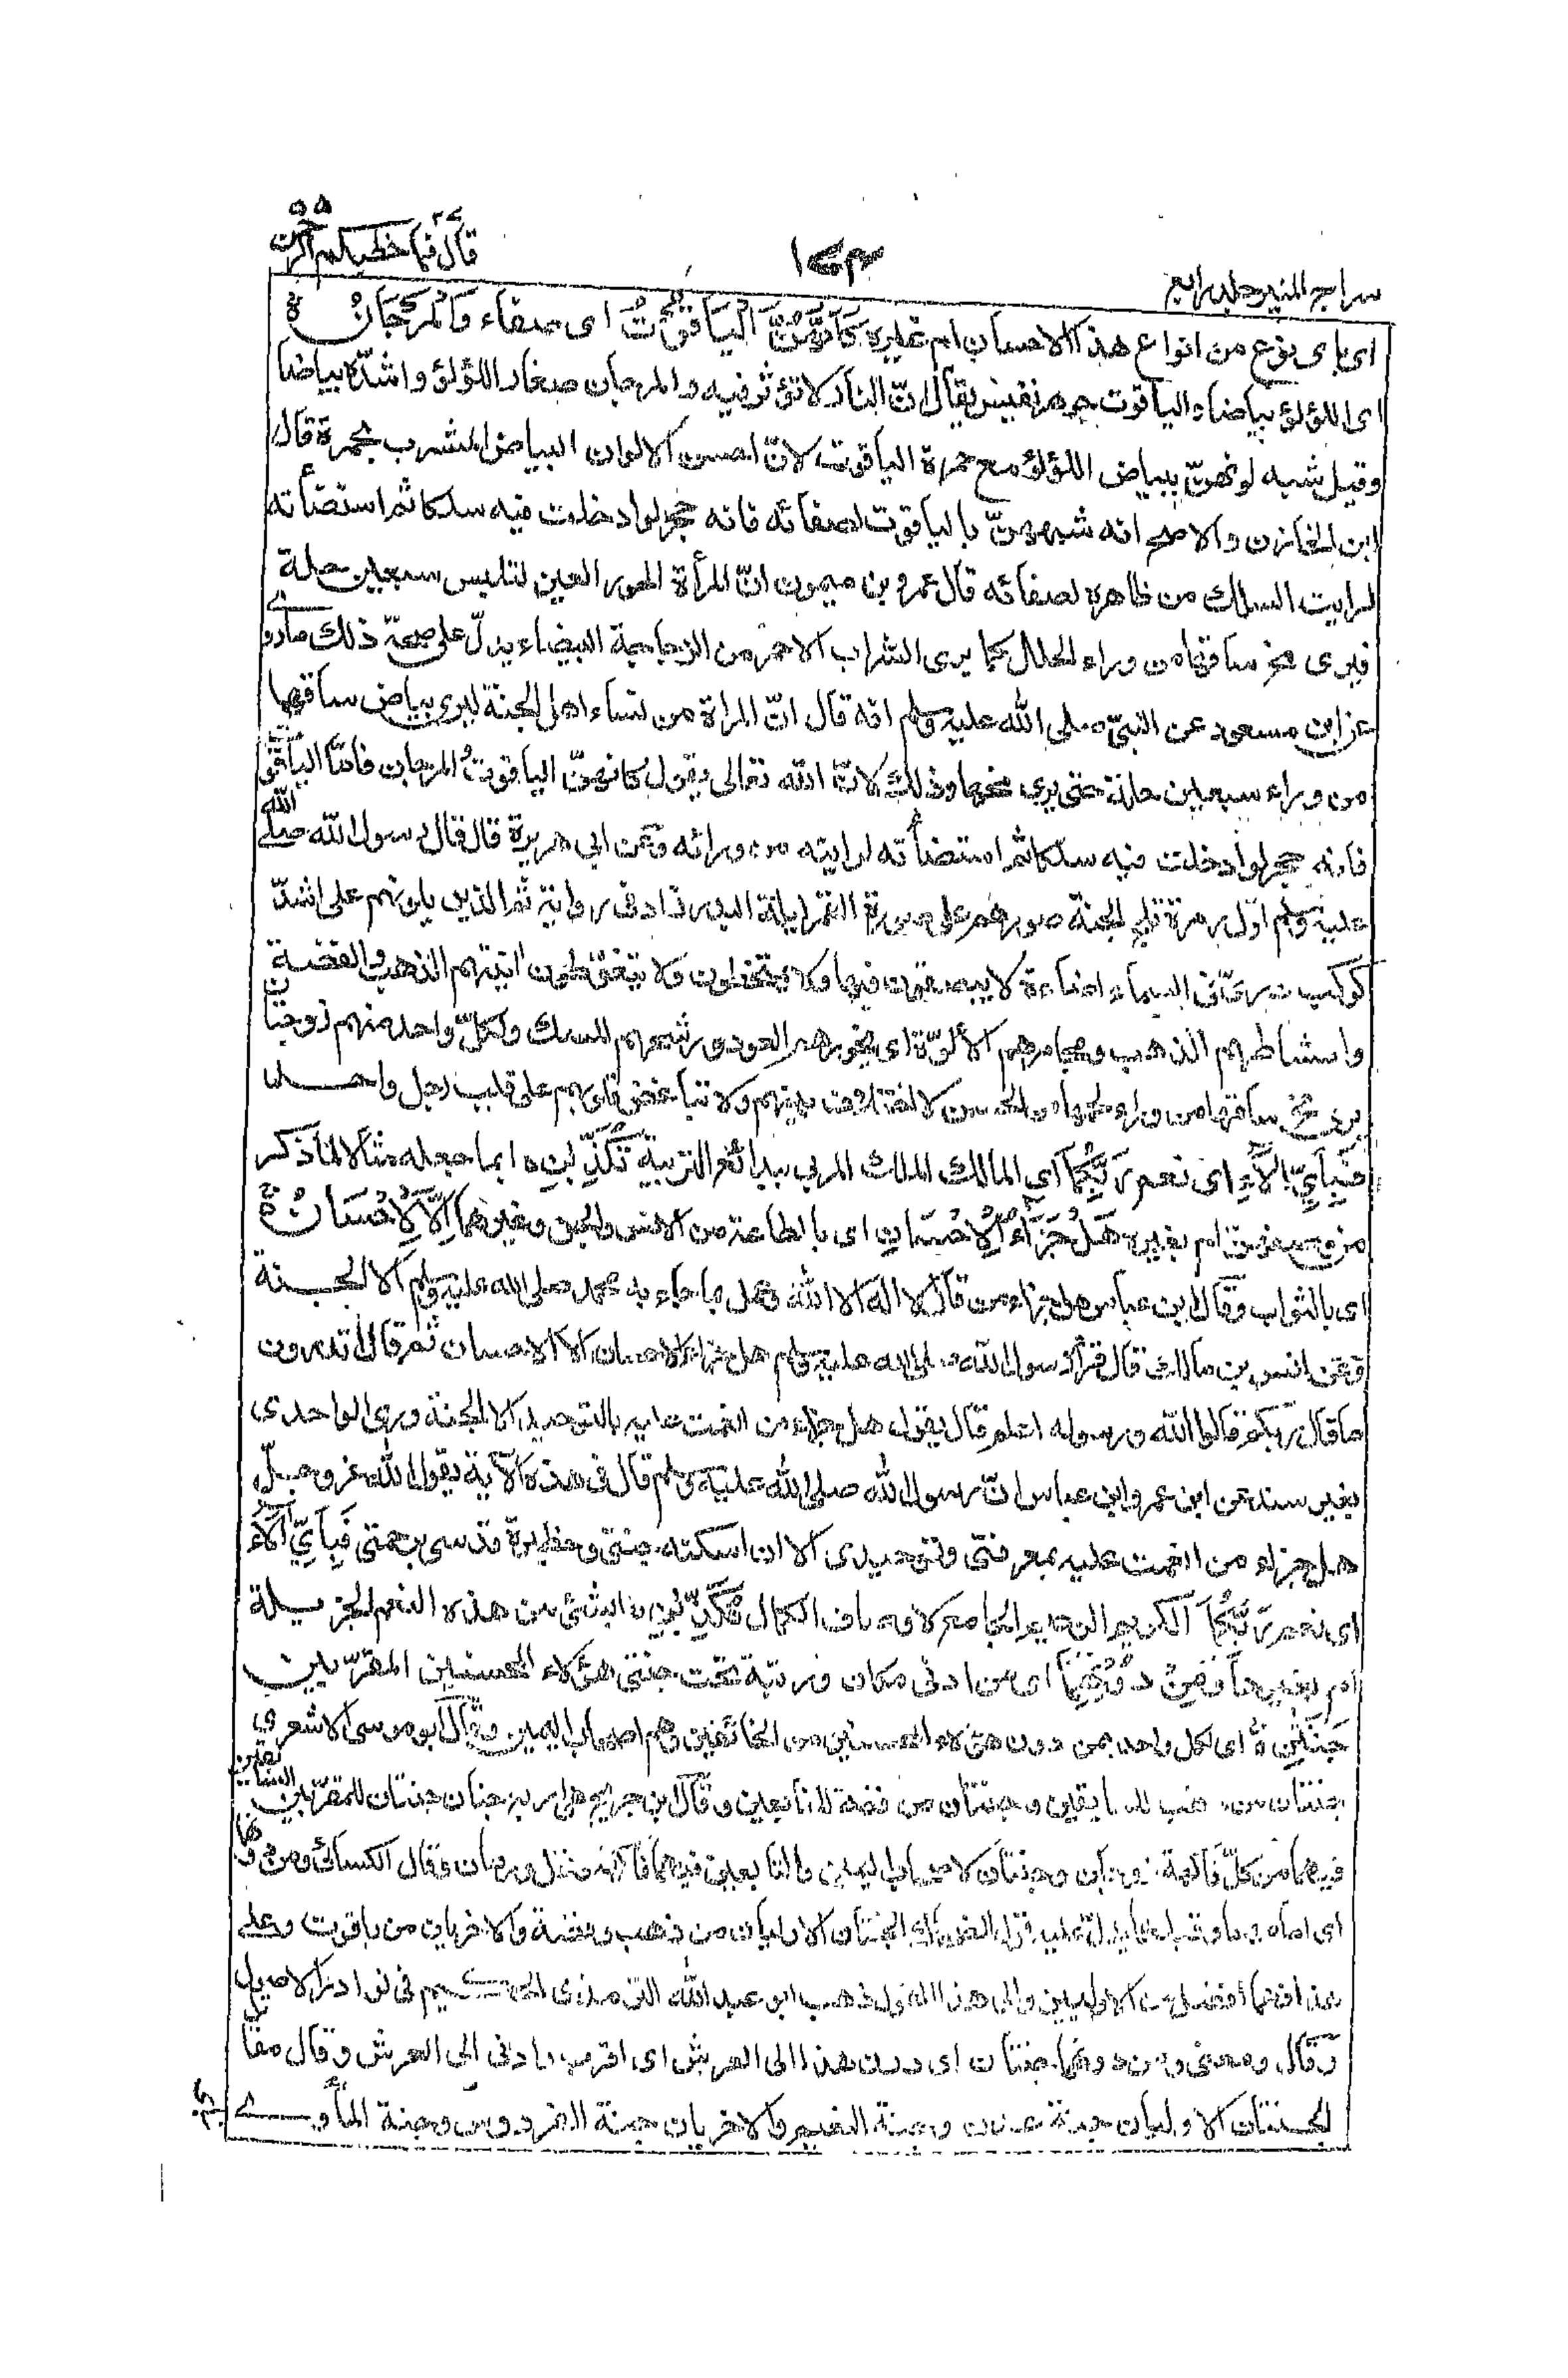 سراج المنير جلد رابع
١٧٣
قال فما خطبكم ٢٧ الرحمن ٥٥
اى باى نوع من انواع هذا الاحسان ام غيره كَاَنَّهُنَّ الْيَاقُوْتُ اى صفاء وَالْمَرْجَانُ ۚ
اى اللؤلؤ بياضا والياقوت جوهر نفيس يقال انّ النار لا تؤثر فيه والمرجان صغار اللؤلؤ واشدّه بياضا
وقيل شبه لونهنّ ببياض اللؤلؤ مع حمرة الياقوت لانّ احسن الالوان البياض المشرب بحمرة قال
ابن الخازن والاصح انه شبههنّ بالياقوت لصفائه فانه حجر لو ادخلت فيه سلكا ثم استضأته
لرايت السلك من ظاهره لصفائه قال عمرو بن ميمون انّ المرأة الحور العين لتلبس سبعين حلة
فيرى مخ ساقها من وراء الحلل كما يرى الشراب الاحمر من الزجاجة البيضاء يدلّ على صحة ذلك ماروے
عن ابن مسعود عن النبىّ صلى الله عليه وسلم انه قال انّ المراة من نساء اهل الجنة ليرى بياض ساقها
من وراء سبعين حلة حتى يرى مخها وذلك لانّ الله تعالى يقول كانهنّ الياقوت والمرجان فامّا الياقوت
فانه حجر لو ادخلت فيه سلكا ثم استضأته لرايته من ورائه وعن ابى هريرة قال قال رسول الله صلى الله
عليه وسلم اوّل زمرة تلج الجنة صورهم على صورة القمر ليلة البدر زاد فى رواية ثم الذين يلونهم على اشدّ
كوكب درىّ فى السماء اضاءة لا يبصقون فيها ولا يمتخطون ولا يتغوّطون انيتهم الذهب والفضة
وامشاطهم الذهب ومجامرهم الألوّة اى بخورهم العود ورشحهم المسك ولكلّ واحد منهم زوجتان
يرى مخ ساقها من وراء لحمها من الحسن لا اختلاف بينهم ولا تباغض قلوبهم على قلب رجل واحد
فَبِاَيِّ اٰلَاۤءِ اى نعم رَبِّكُمَا اى المالك الملك المربى ببدائع التربية تُكَذِّبٰنِ ۝ ابما جعله مثالا لما ذكر
من وصفهنّ ام بغيره هَلْ جَزَاۤءُ الْاِحْسَانِ اى بالطاعة من الانس والجن وغيرهما اِلَّا الْاِحْسَانُ ۚ
اى بالثواب وقال ابن عباس هل جزاء من قال لا اله الا الله وعمل بما جاء به محمد صلى الله عليه وسلم الا الجنة
وعن انس بن مالك قال قرأ رسول الله صلى الله عليه وسلم هل جزاء الاحسان الا الاحسان ثم قال اتدرون
ما قال ربكم قالوا الله ورسوله اعلم قال يقول هل جزاء من انعمت عليه بالتوحيد الا الجنة وروى الواحدى
بغير سند عن ابن عمر وابن عباس انّ رسول الله صلى الله عليه وسلم قال فى هذه الآية يقول الله عز وجلّ
هل جزاء من انعمت عليه بمعرفتى وتوحيدى الا ان اسكنه جنتى وحظيرة قدسى برحمتى فَبِاَيِّ اٰلَاۤءِ
اى نعم رَبِّكُمَا الكريم الرحيم الجامع لاوصاف الكمال تُكَذِّبٰنِ ابشئ من هذه النعم الجزيلة
ام بغيرها وَمِنْ دُوْنِهِمَا اى من ادنى مكان ورتبة تحت جنتى هؤلاء المحسنين المقرّبين
جَنَّتٰنِ ۚ اى لكل واحد ممن دون هؤلاء المحسنين من الخائفين وهم اصحاب اليمين وقال ابو موسى الاشعرى
جنتان من ذهب للسابقين وجنتان من فضة للتابعين وقال ابن جريج هى اربع جنان جنتان للمقرّبين السابقين
فيهما من كلّ فاكهة زوجان وجنتان لاصحاب اليمين والتابعين فيهما فاكهة ونخل ورمان وقال الكسائى ومن دونهما
اى امامهما وقبلهما يدلّ عليه قول الضحاك الجنتان الاوليان من ذهب وفضة والاخريان من ياقوت وعلى
هذا فهما افضل من الاوليين والى هذا القول ذهب ابو عبد الله الترمذى الحكيم فى نوادر الاصول
وقال ومعنى ومن دونهما جنتان اى دون هذا الى العرش اى اقرب وادنى الى العرش وقال مقاتل
الجنتان الاوليان جنة عدن وجنة النعيم والاخريان جنة الفردوس وجنة المأوے